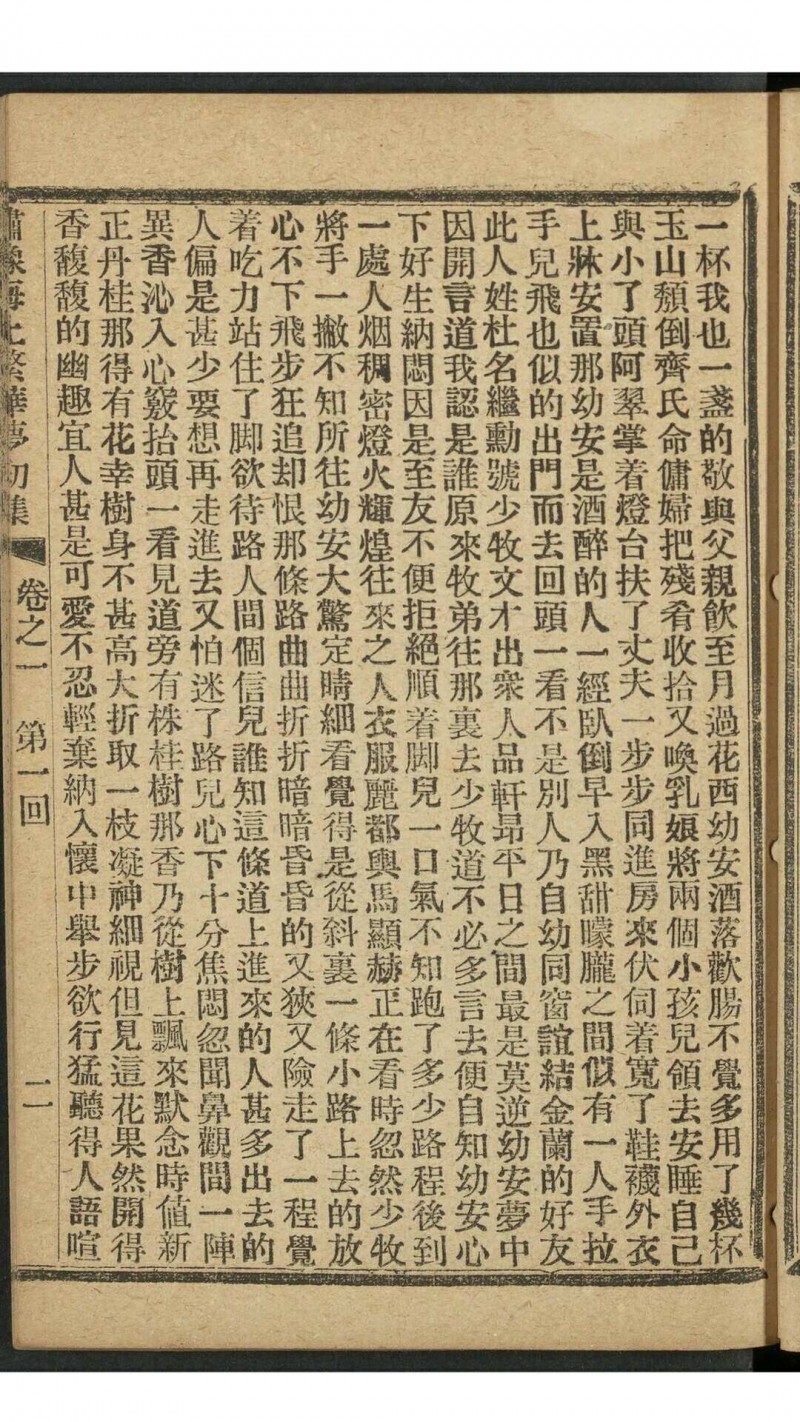 一杯我也一盞的敬與父親飲至月過花西幼安酒落歡腸不覺多用了幾杯
玉山頹倒齊氏命傭婦把殘肴收拾又喚乳娘將兩個小孩兒領去安睡自己
與小了頭阿翠掌着燈台扶了丈夫一步步同進房來伏伺着寬了鞋襪外衣
上牀安置那幼安是酒醉的人一經臥倒早入黑甜矇朧之間似有一人手拉
手兒飛也似的出門而去回頭一看不是別人乃自幼同窗誼結金蘭的好友
此人姓杜名繼勳號少牧文才出衆人品軒昂平日之間最是莫逆幼安夢中
因開言道我認是誰原來牧弟往那裏去少牧道不必多言去便自知幼安心
下好生納悶因是至友不便拒絕順着脚兒一口氣不知跑了多少路程後到
一處人烟稠密燈火輝煌往來之人衣服麗都輿馬顯赫正在看時忽然少牧
將手一撇不知所往幼安大驚定睛細看覺得是從斜裏一條小路上去的放
心不下飛步狂追却恨那條路曲曲折折暗暗昏昏的又狹又險走了一程覺
着吃力站住了脚欲待路人問個信兒誰知這條道上進來的人甚多出去的
人偏是甚少要想再走進去又怕迷了路兒心下十分焦悶忽聞鼻觀間一陣
異香沁入心竅抬頭一看見道旁有株桂樹那香乃從樹上飄來默念時値新
正丹桂那得有花幸樹身不甚高大折取一枝凝神細視但見這花果然開得
香馥馥的幽趣宜人甚是可愛不忍輕棄納入懷中舉步欲行猛聽得人語喧
繡像海上繁華夢初集 卷之一 第一回 二